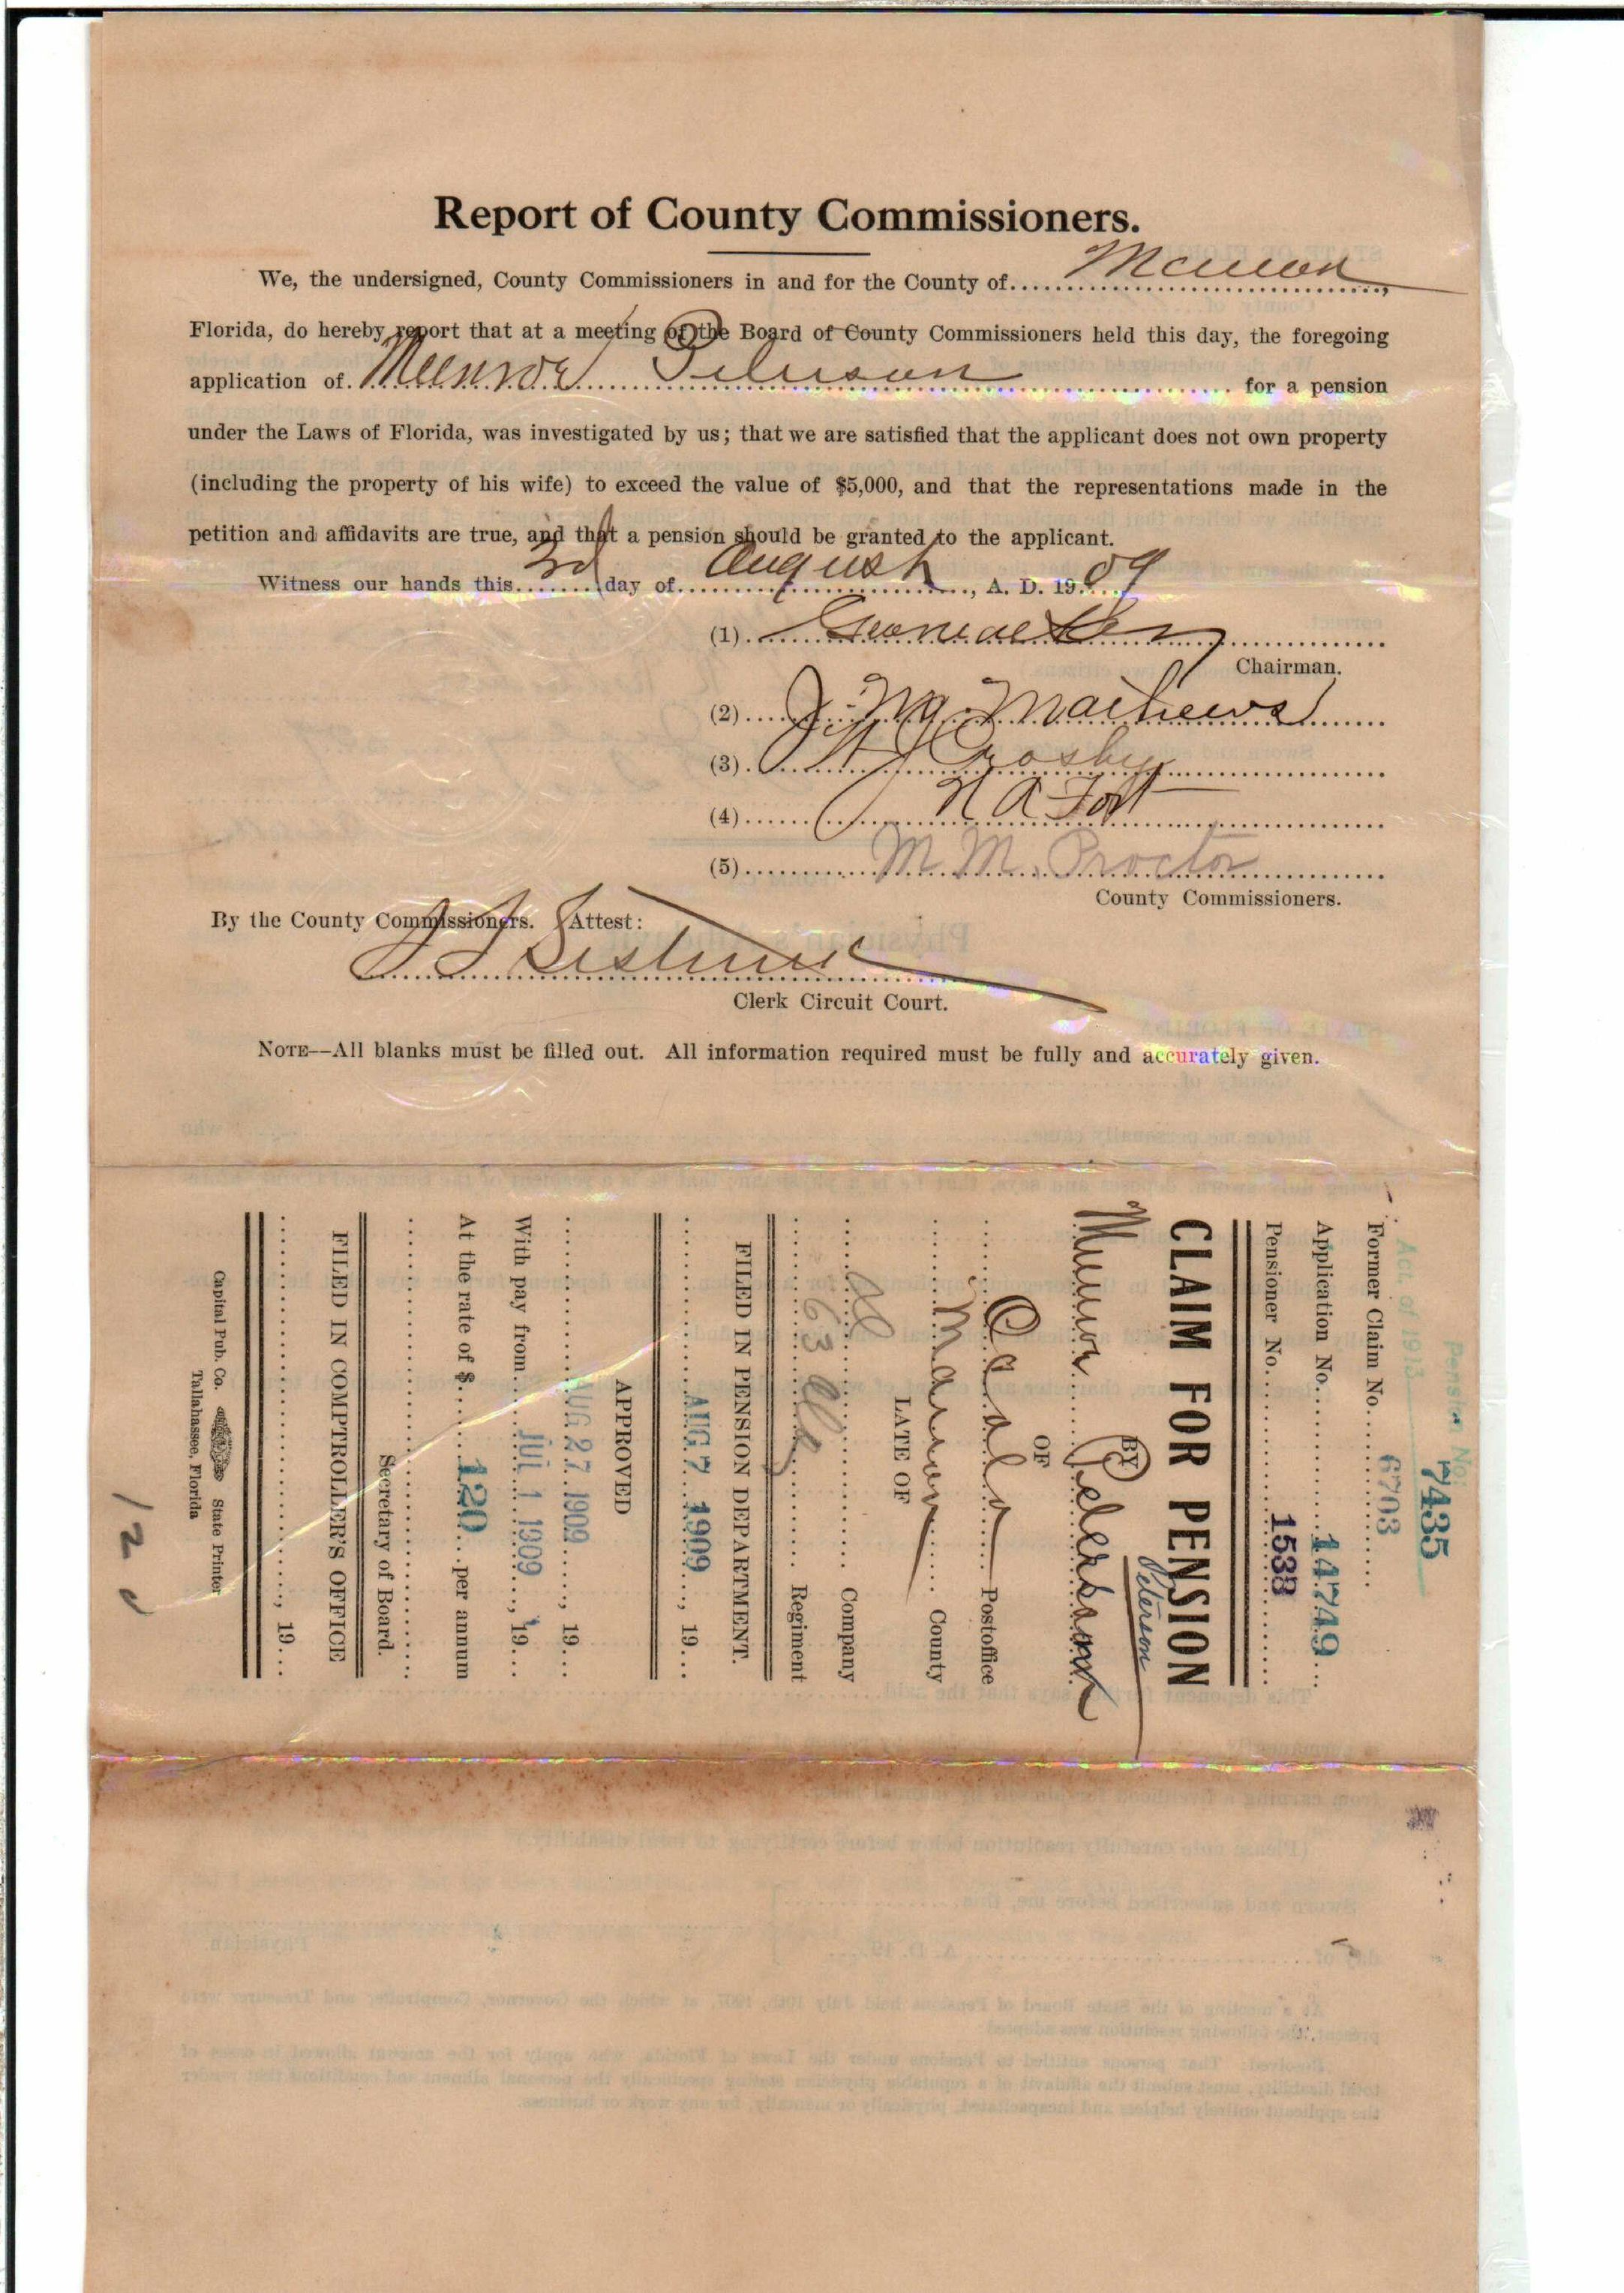 Report of County Commissioners.
We, the undersigned, County Commissioners in and for the County of Marion,
Florida, do hereby report that at a meeting of the Board of County Commissioners held this day, the foregoing
application of Munroe Peterson for a pension
under the Laws of Florida, was investigated by us; that we are satisfied that the applicant does not own property
(including the property of his wife) to exceed the value of $5,000, and that the representations made in the
petition and affidavits are true, and that a pension should be granted to the applicant.
Witness our hands this 3rd day of August, A. D. 1909
(1)
Chairman.
(2) J. M. Mathews
(3) Crosby
(4) N A Fort
(5) M. M. Proctor
County Commissioners.
By the County Commissioners. Attest:
Clerk Circuit Court.
NOTE—All blanks must be filled out. All information required must be fully and accurately given.
Pension No:
7435
Act. of 1913
Former Claim No. 6703
Application No. 14749
Pensioner No. 1538
CLAIM FOR PENSION
BY
Peterson
Munroe Peterson
OF
Ocala Postoffice
Marion County
LATE OF
Company
63 Ala Regiment
FILED IN PENSION DEPARTMENT.
AUG 7 1909, 19
APPROVED
AUG 27 1909, 19
With pay from JUL 1 1909, 19
At the rate of $ 120 per annum
Secretary of Board.
FILED IN COMPTROLLER'S OFFICE
, 19
Capital Pub. Co. State Printer
Tallahassee, Florida